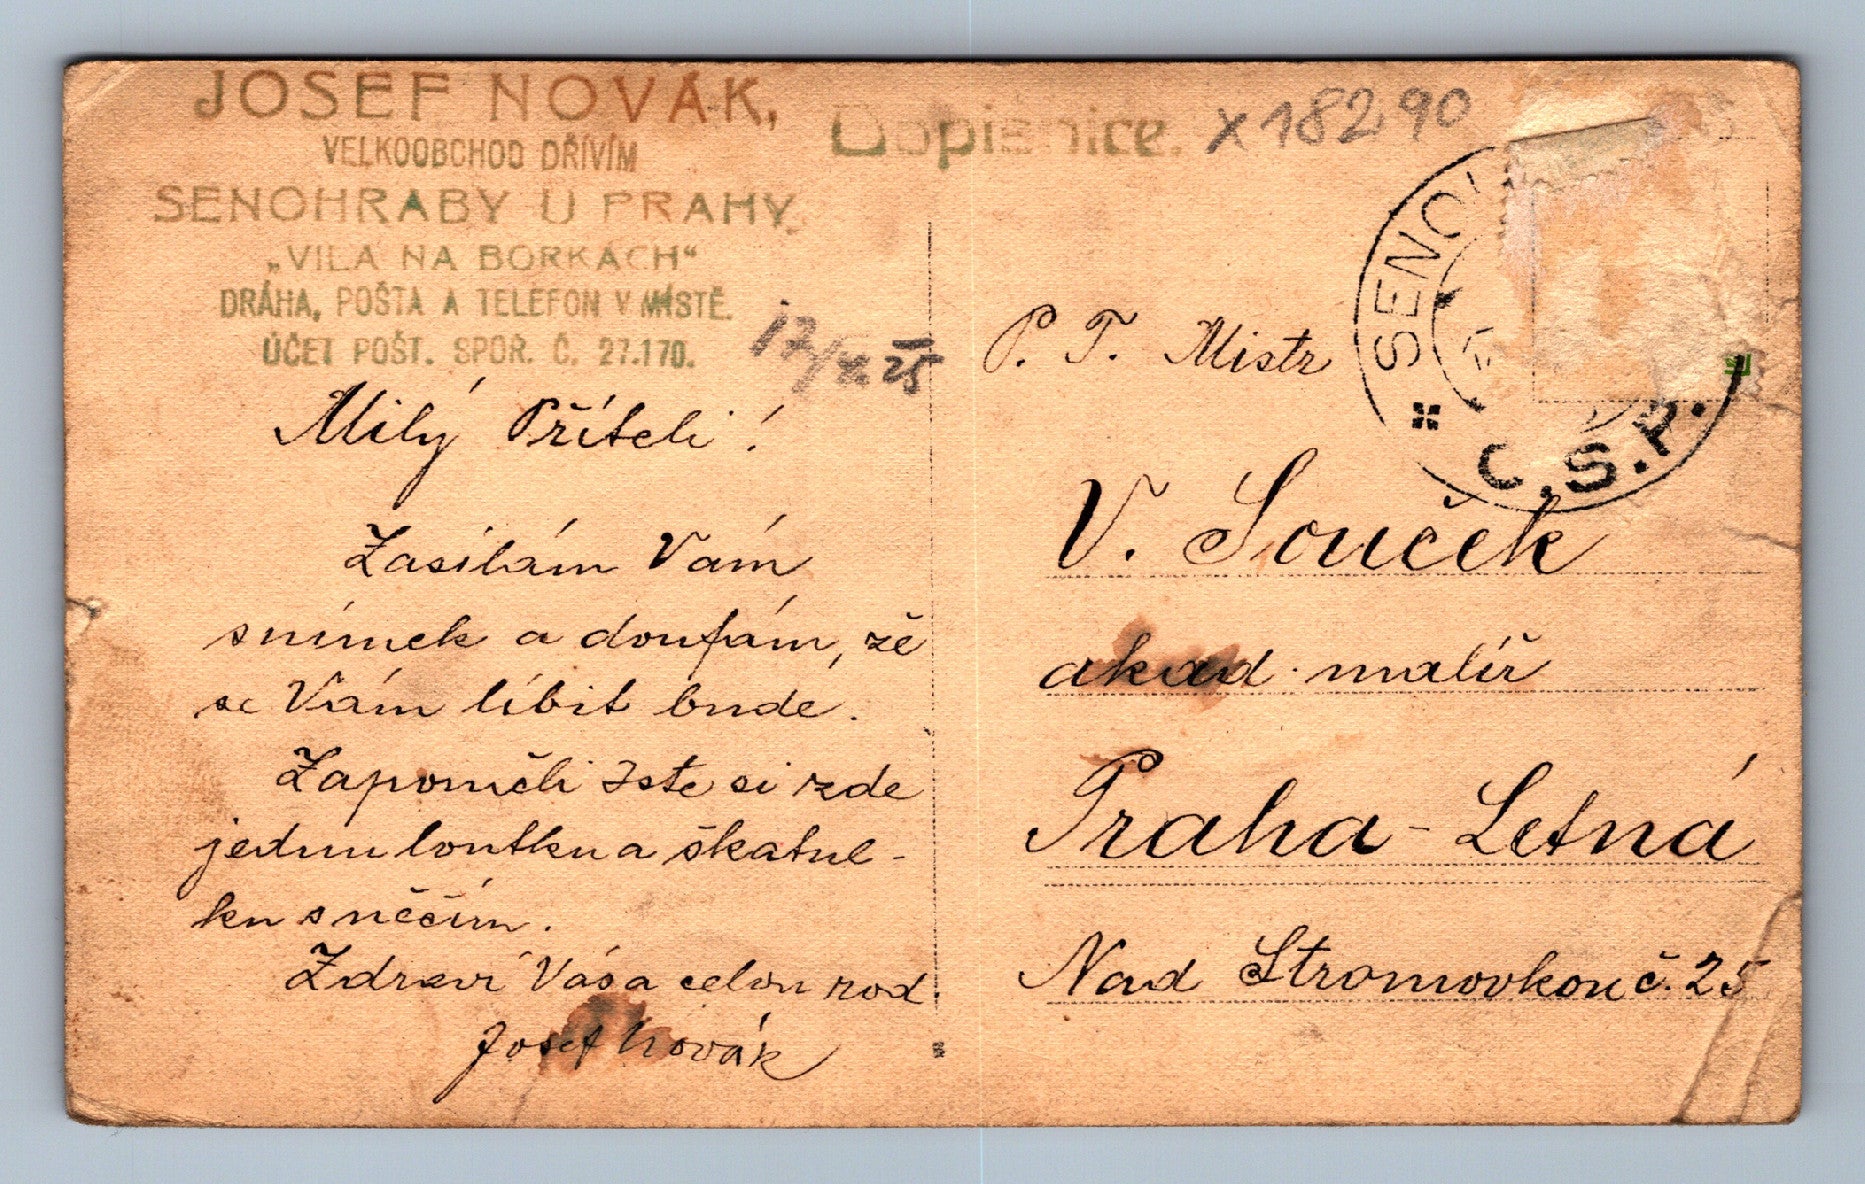 JOSEF NOVÁK,
VELKOOBCHOD DŘÍVÍM
SENOHRABY U PRAHY.
„VILA NA BORKÁCH“
DRÁHA, POŠTA A TELEFON V MÍSTĚ.
ÚČET POŠT. SPOŘ. Č. 27.170.
Dopisnice.
X 18290
17/X 25
Milý Příteli!
Zasílám Vám
snímek a doufám, že
se Vám líbit bude.
Zapoměli Jste si zde
jednu loutku a škatul-
ku s něčím.
Zdraví Vás a celou rod.
Josef Novák
SENO
Č.S.P.
P. T. Mistr
V. Souček
akad. malíř
Praha - Letná
Nad Stromovkou č. 25